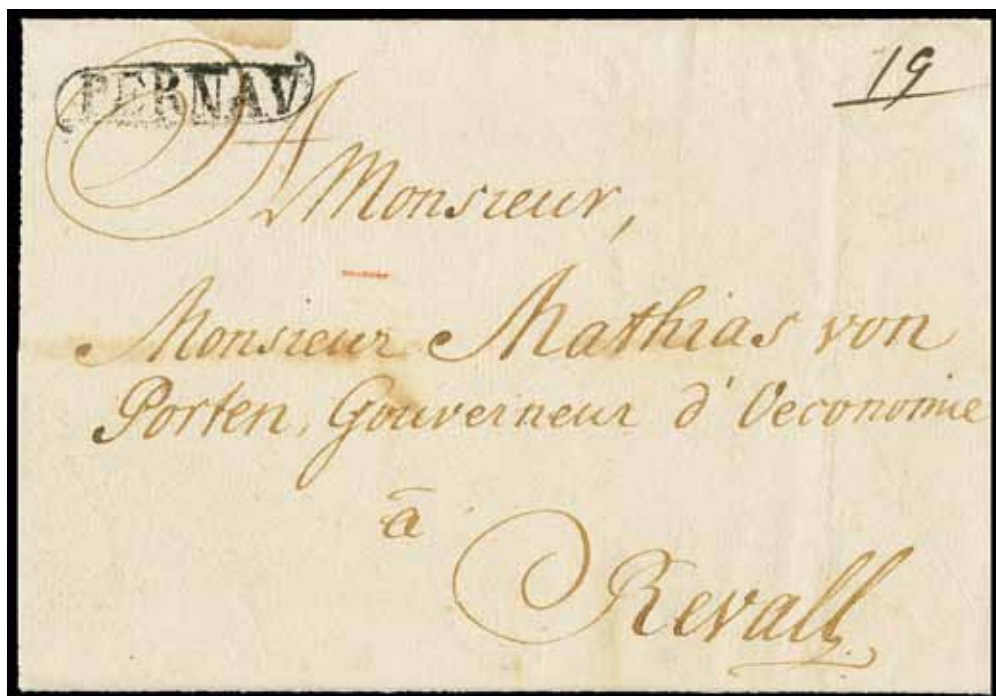 PERNAV
19
A Monsieur,
Monsieur Mathias von
Porten, Gouverneur d'Oeconomie
à
Revall